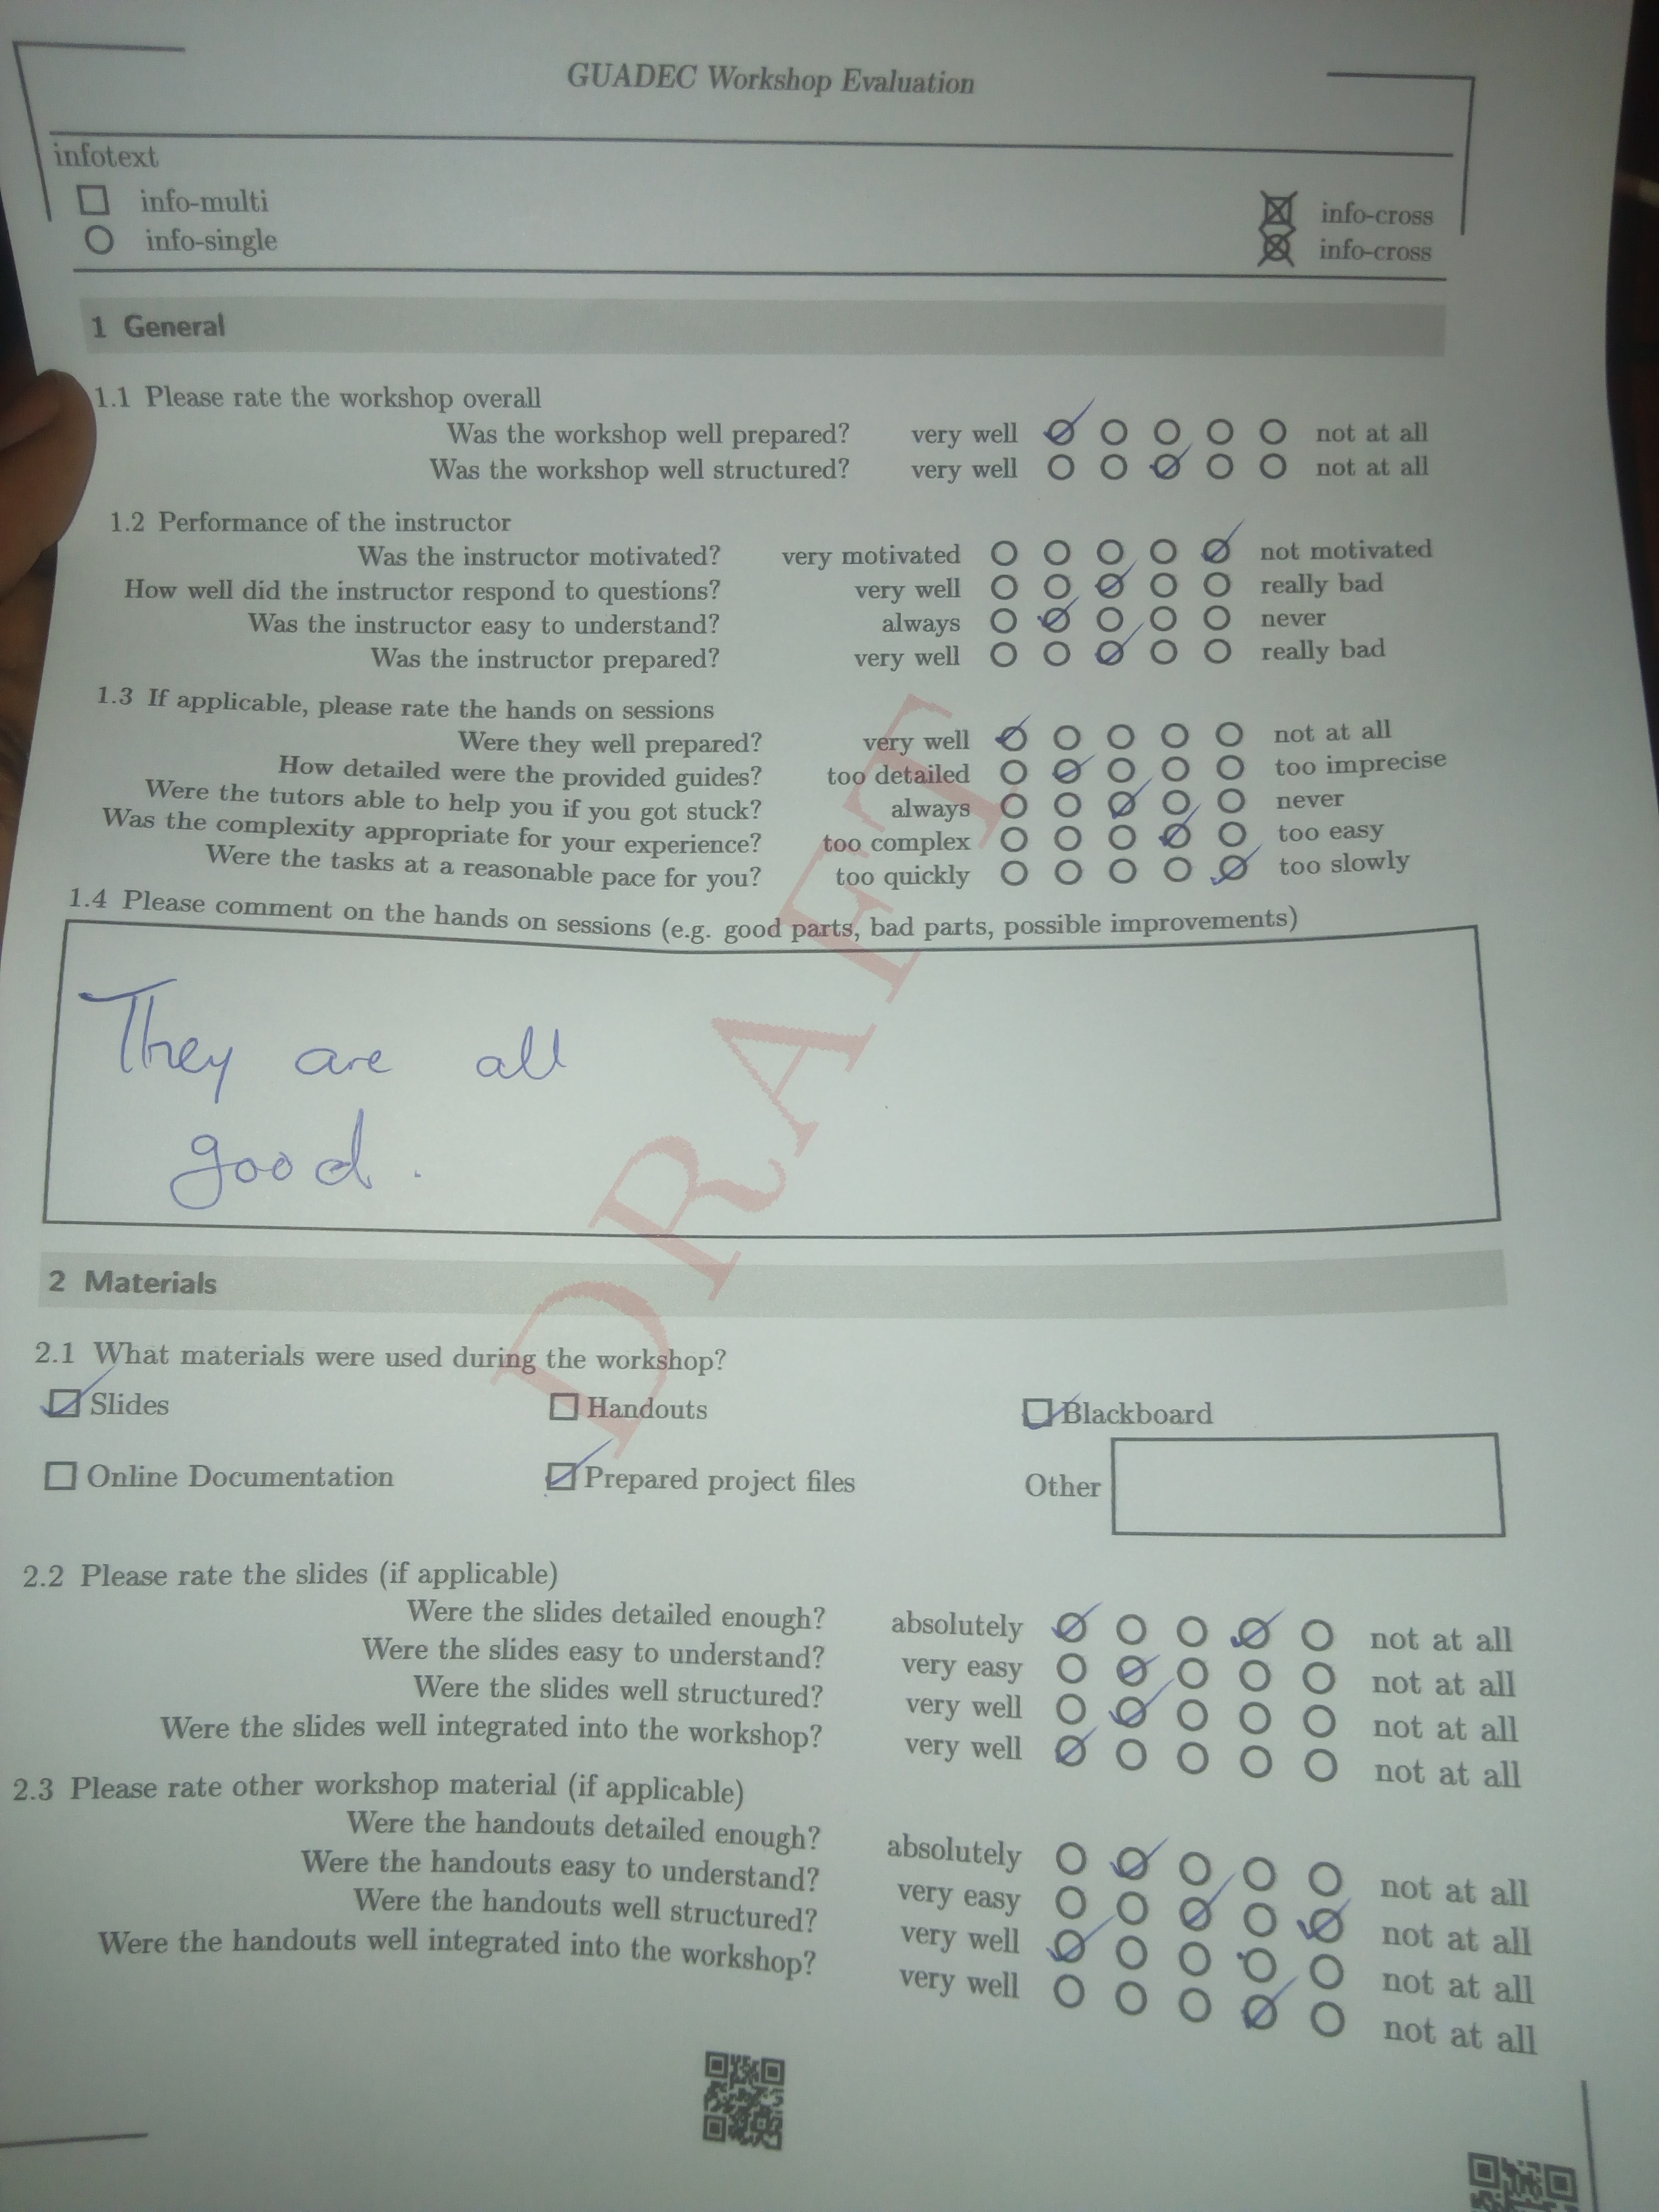 GUADEC Workshop Evaluation
infotext
info-multi
info-single
info-cross
info-cross
1 General
1.1 Please rate the workshop overall
Was the workshop well prepared? very well not at all
Was the workshop well structured? very well not at all
1.2 Performance of the instructor
Was the instructor motivated? very motivated not motivated
How well did the instructor respond to questions? very well really bad
Was the instructor easy to understand? always never
Was the instructor prepared? very well really bad
1.3 If applicable, please rate the hands on sessions
Were they well prepared? very well not at all
How detailed were the provided guides? too detailed too imprecise
Were the tutors able to help you if you got stuck? always never
Was the complexity appropriate for your experience? too complex too easy
Were the tasks at a reasonable pace for you? too quickly too slowly
1.4 Please comment on the hands on sessions (e.g. good parts, bad parts, possible improvements)
They are all
good.
DRAFT
2 Materials
2.1 What materials were used during the workshop?
Slides Handouts Blackboard
Online Documentation Prepared project files Other
2.2 Please rate the slides (if applicable)
Were the slides detailed enough? absolutely not at all
Were the slides easy to understand? very easy not at all
Were the slides well structured? very well not at all
Were the slides well integrated into the workshop? very well not at all
2.3 Please rate other workshop material (if applicable)
Were the handouts detailed enough? absolutely not at all
Were the handouts easy to understand? very easy not at all
Were the handouts well structured? very well not at all
Were the handouts well integrated into the workshop? very well not at all